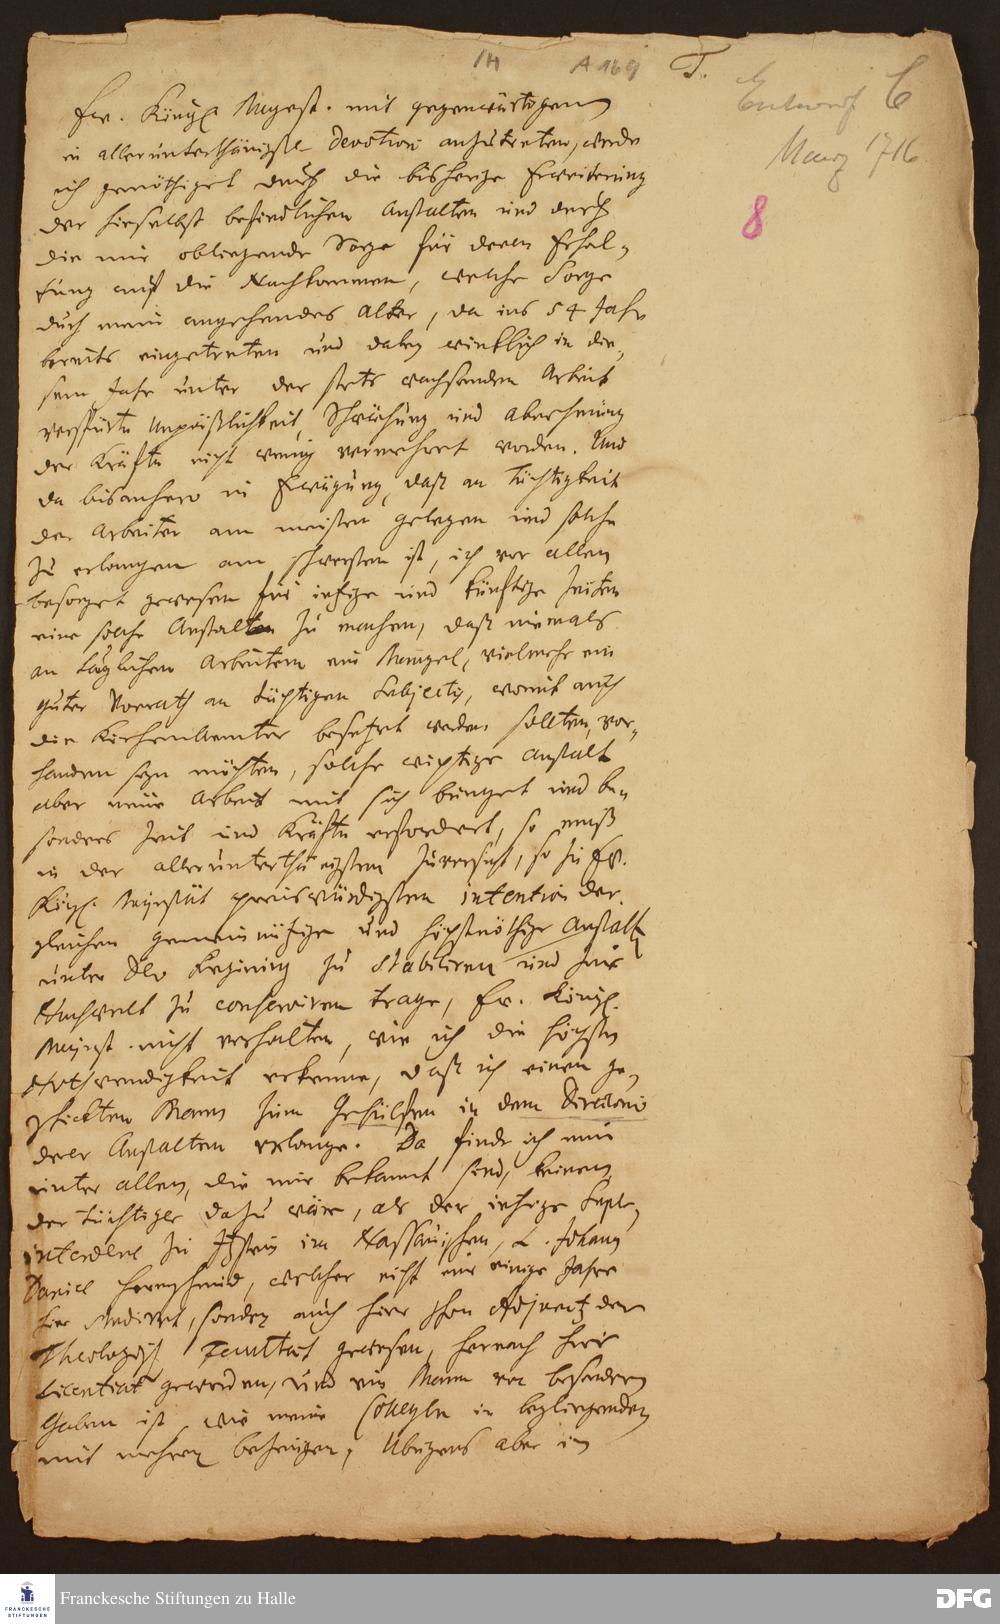 1H A 169 T.
Entwurf C
Marz 1716
8
Ew. Königl. Majest. mit gegenwärtigem
in allerunterthänigster Devotion anzutreten, werde
ich genöthiget durch die bisherige Erweiterung
der hieselbst befindlichen Anstalten und durch
die mir obliegende Sorge für deren Erhal-
tung auf die Nachkommen, welche Sorge
durch mein angehendes Alter, da ins 54 Jahr
bereits eingetreten und dabey wircklich in die-
sem Jahr unter der stets wachsenden Arbeit
verspürte Unpäßlichkeit, Schwächung und Abnehmung
der Kräfte nicht wenig vermehret worden. Und
da bisanhero in Erwägung, daß an Tüchtigkeit
der Arbeiter am meisten gelegen und solche
zu erlangen am schwersten ist, ich vor allen
besorget gewesen für ietzige und künftige Zeiten
eine solche Anstalten zu machen, daß niemals
an tüglichen Arbeitern ein Mangel, vielmehr ein
guter Vorrath an tüchtigen Subjectis, womit auch
die Kirchen Aemter besetzet werden sollten, vor-
handen seyn möchten, solche wichtige Anstalt
aber neue Arbeit mit sich bringet und be-
sonders Zeit und Kräfte erfordert, so muß
in der allerunterthänigsten Zuversicht, so zu Ew.
Königl. Majestät preiswürdigsten intention der-
gleichen gemeinnützige und höchstnöthige Anstalten
unter Dero Regierung zu stabiliren und zur
Nachwelt zu conserviren trage, Ew. Königl.
Majest. nicht verhalten, wie ich die höchste
Nothwendigkeit erkenne, daß ich einen ge-
schickten Mann zum Gehülffen in dem Directorio
derer Anstalten erlange. Da finde ich nun
unter allen, die mir bekannt sind, keinen
der tüchtiger dazu wäre, als der ietzige Super-
intendens zu Itzstein im Nassauischen, L. Johann
Daniel Herrnschmid, welcher nicht nur einige Jahre
hier studiret, sondern auch hier schon Adjunctus der
Theologisch. Facultät gewesen, hernach hier
Licentiat geworden, und ein Mann von besondern
Gaben ist, wie meine Collegen in beyliegenden
mit mehren bezeugen, Ubrigens aber im
FRANCKESCHE STIFTUNGEN
Franckesche Stiftungen zu Halle
DFG